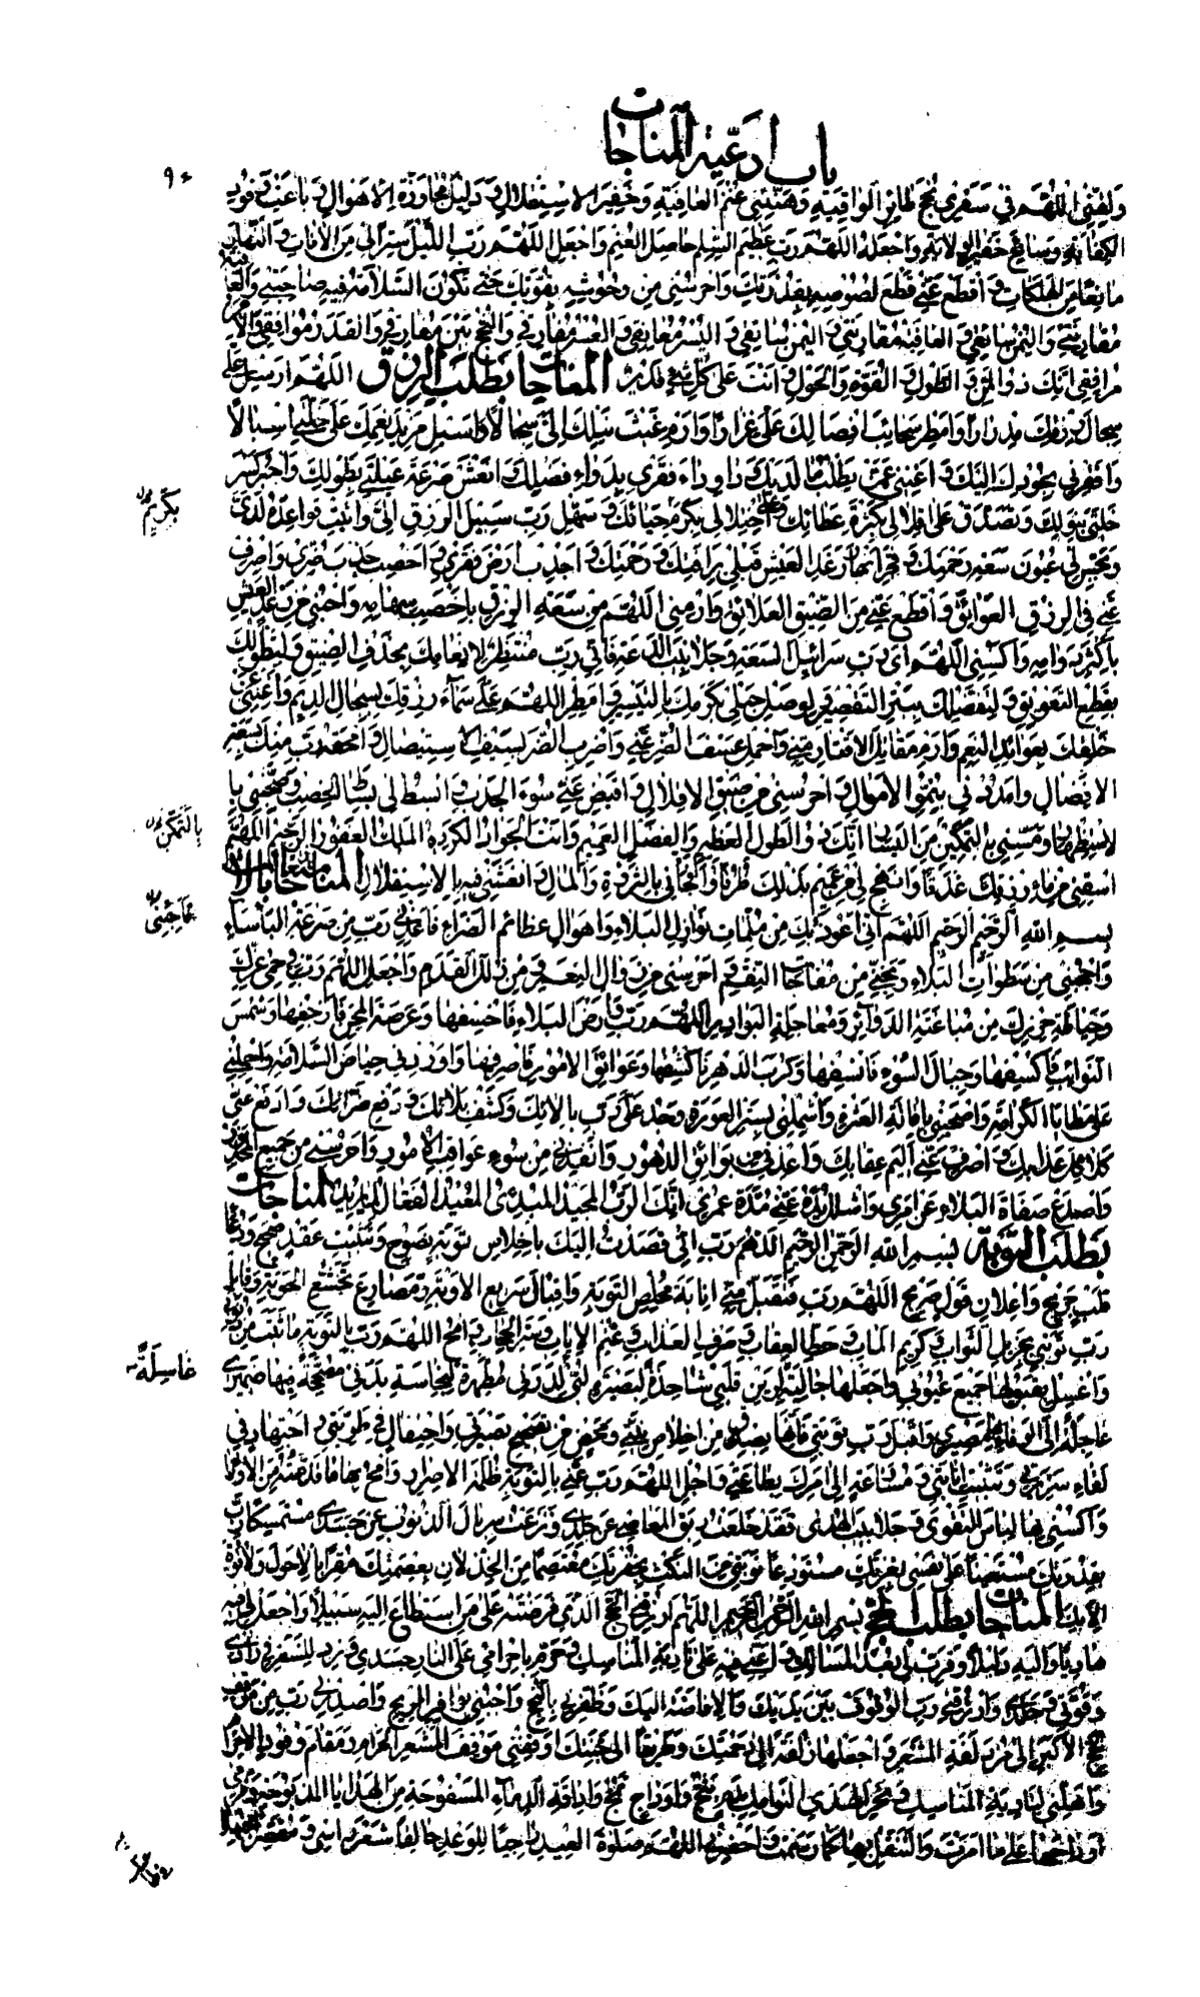 باب ادعية المناجات
ولقني اللهم في سفري نجح طائر الواقية وهنئني غنم العافية وخفير الاستقلال و دليل مجاوزة الاهوال و باعث وفور
الكفاية وسانح خفير الولاية واجعله اللهم رب عظيم السلم حاصل الغنم واجعل اللهم رب الليل سترا لي من الافات و النهار
مانعا من الهلكات و اقطع عني قطع لصوصه بقدرتك واحرسني من وحوشه بقوتك حتى تكون السلامة فيه صاحبتي والعافية
مقارنتي واليمن سائقي و اليسر معانقي و العسر مفارقي و النجح بين مفارقي والقدر موافقي والامر
مرافقي انك ذو المن و الطول و القوة والحول و انت على كل شيء قدير المناجات بطلب الرزق اللهم ارسل علي
سجال رزقك مدرارا وامطر سحائب افضالك علي غزارا وارم غيث نيلك الي سجالا واسبل مزيد نعمك على خلتي اسبالا
وافقرني بجودك اليك و اغنني عمن يطلب ما لديك وداو داء فقري بدواء فضلك و انعش صرعة عيلتي بطولك واجبر كسر
خلتي بنولك وتصدق على اقلالي بكثرة عطائك و على اختلالي بكرم حبائك و سهل رب سبيل الرزق الي واثبت قواعده لدي
وبجس لي عيون سعة رحمتك و فجر انهار رغد العيش قبلي برافتك و رحمتك و اجدب ارض فقري و اخصب جدب ضري واصرف
عني في الرزق العوائق و اقطع عني من الضيق العلائق وارمني اللهم من سعة الرزق باخصب سهامه واحبني من رغد العيش
باكثر دوامه واكسني اللهم اي رب سرابيل السعة و جلابيب الدعة فاني رب منتظر لانعامك بحذف الضيق ولتطولك
بقطع التعويق و لتفضلك ببتر التقصير و لوصل حبلي بكرمك بالتيسير و امطر اللهم علي سماء رزقك بسجال الديم واغنني عن
خلقك بعوائد النعم وارم مقاتل الاقتار مني واحمل عسف الضر عني واضرب الضر بسيف الاستيصال و امحقه رب منك بسعة
الافضال وامددني بنمو الاموال و احرسني من ضيق الاقلال و اقبض عني سوء الجدب و ابسط لي بساط الخصب وصبحني با
لاستظهار ومسني بالتمكين من اليسار انك ذو الطول العظيم والفضل العميم وانت الجواد الكريم الملك الغفور الرحيم اللهم
اسقني من ماء رزقك غدقا وانهج لي من عميم بذلك طرقا و افجاني بالثروة والمال و انعشني فيه بالاستقلال المناجات بالاستعاذة
بسم الله الرحمن الرحيم اللهم اني اعوذ بك من ملمات نوازل البلاء واهوال عظائم الضراء فاعذني رب من صرعة الباساء
واحجبني من سطوات البلاء ونجني من مفاجاة النقم و احرسني من زوال النعم و من زلل القدم واجعلني اللهم رب في حمى عزك
وحياطة حرزك من مباغتة الدوائر ومعاجلة البوادر اللهم رب وارض البلاء فاخسفها وعرصة المحن فارجفها وشمس
النوائب فاكسفها وجبال السوء فانسفها وكرب الدهر فاكشفها وعوائق الامور فاصرفها واوردني حياض السلامة واحملني
على مطايا الكرامة واصحبني باقالة العثرة واشملني بستر العورة وجد علي رب بالائك وكشف بلائك و دفع ضرائك وادفع عني
كلاكل عذابك و اصرف عني اليم عقابك واعذني من بوائق الدهور وانقذني من سوء عواقب الامور واحرسني من جميع المحذور
واصدع صفاة البلاء عن امري واشلل يده عني مدة عمري انك الرب المجيد المبدئ المعيد الفعال لما يريد المناجات
بطلب التوبة بسم الله الرحمن الرحيم اللهم رب اني قصدت اليك باخلاص توبة نصوح وتثبيت عقد صحيح ودعاء
قلب جريح واعلان قول صريح اللهم رب فتقبل مني انابة مخلص التوبة واقبال سريع الاوبة و مصارع تخشع الحوبة و قابل
رب توبتي بجزيل الثواب و كريم الماب و حط العقاب و صرف العذاب و غنم الاياب و ستر الحجاب و امح اللهم رب بالتوبة ما ثبت من ذنوبي
واغسل بقبولها جميع عيوبي واجعلها جالية لرين قلبي شاحذة لبصيرة لبي غاسلة لدرني مطهرة لنجاسة بدني مصححة فيها ضميري
عاجلة الى الوفاء بها مصيري واقبل رب توبتي فانها بصدق من اخلاص نيتي ومحض من تصحيح بصيرتي واحتفال في طويتي و اجتهاد في
لقاء سريرتي وتثبيت انابتي و مسارعة الى امرك بطاعتي واجل اللهم رب عني بالتوبة ظلمة الاصرار وامح بها ما قدمته من الاوزار
واكسني بها لباس التقوى و جلابيب الهدى فقد خلعت ربق المعاصي عن جلدي ونزعت سربال الذنوب عن جسدي متمسكا رب
بقدرتك مستعينا على نفسي بعزتك مستودعا توبتي من النكث بخفرتك معتصما من الخذلان بعصمتك مقرا بلا حول ولا قوة
الا بك المناجات بطلب الحج بسم الله الرحمن الرحيم اللهم ارزقني الحج الذي فرضته على من استطاع اليه سبيلا واجعل لي فيه
هاديا واليه دليلا وقرب لي بعد المسالك و اعني فيه على تادية المناسك و حرم باحرامي على النار جسدي و زد للسفر في زادي
وقوتي و جلدي وارزقني رب الوقوف بين يديك والافاضة اليك وظفرني بالنجح واحبني بوافر الربح واصدرني رب من موقف
الحج الاكبر الى مزدلفة المشعر و اجعلها زلفة الى رحمتك وطريقا الى جنتك اوقفني موقف المشعر الحرام و مقام وفود الاحرام
واهلني لتادية المناسك و نحر الهدي التوامك بدم يثج و اوداج تمج واراقة الدماء المسفوحة من الهدايا المذبوحة و فري
اوداجها على ما امرت والتنفل بها كما رسمت و احضرني اللهم صلوة العيد راجيا للوعد حالقا شعر راسي و مقصرا مجتهدا
٩٠
بكريم
بالتمكن
غاسلة